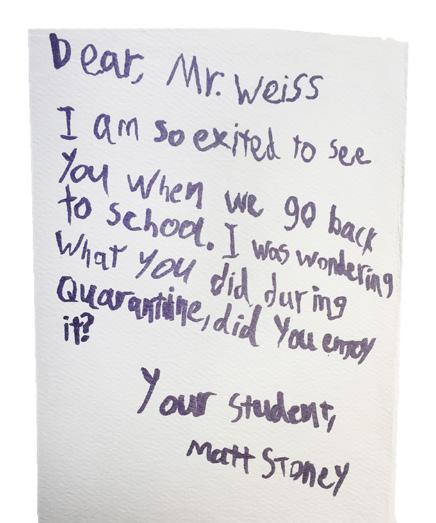 Dear, Mr. Weiss
I am so exited to see
You when we go back
to school. I was wondering
What you did during
Quarantine, did You enjoy
it?
Your student,
Matt Stoney